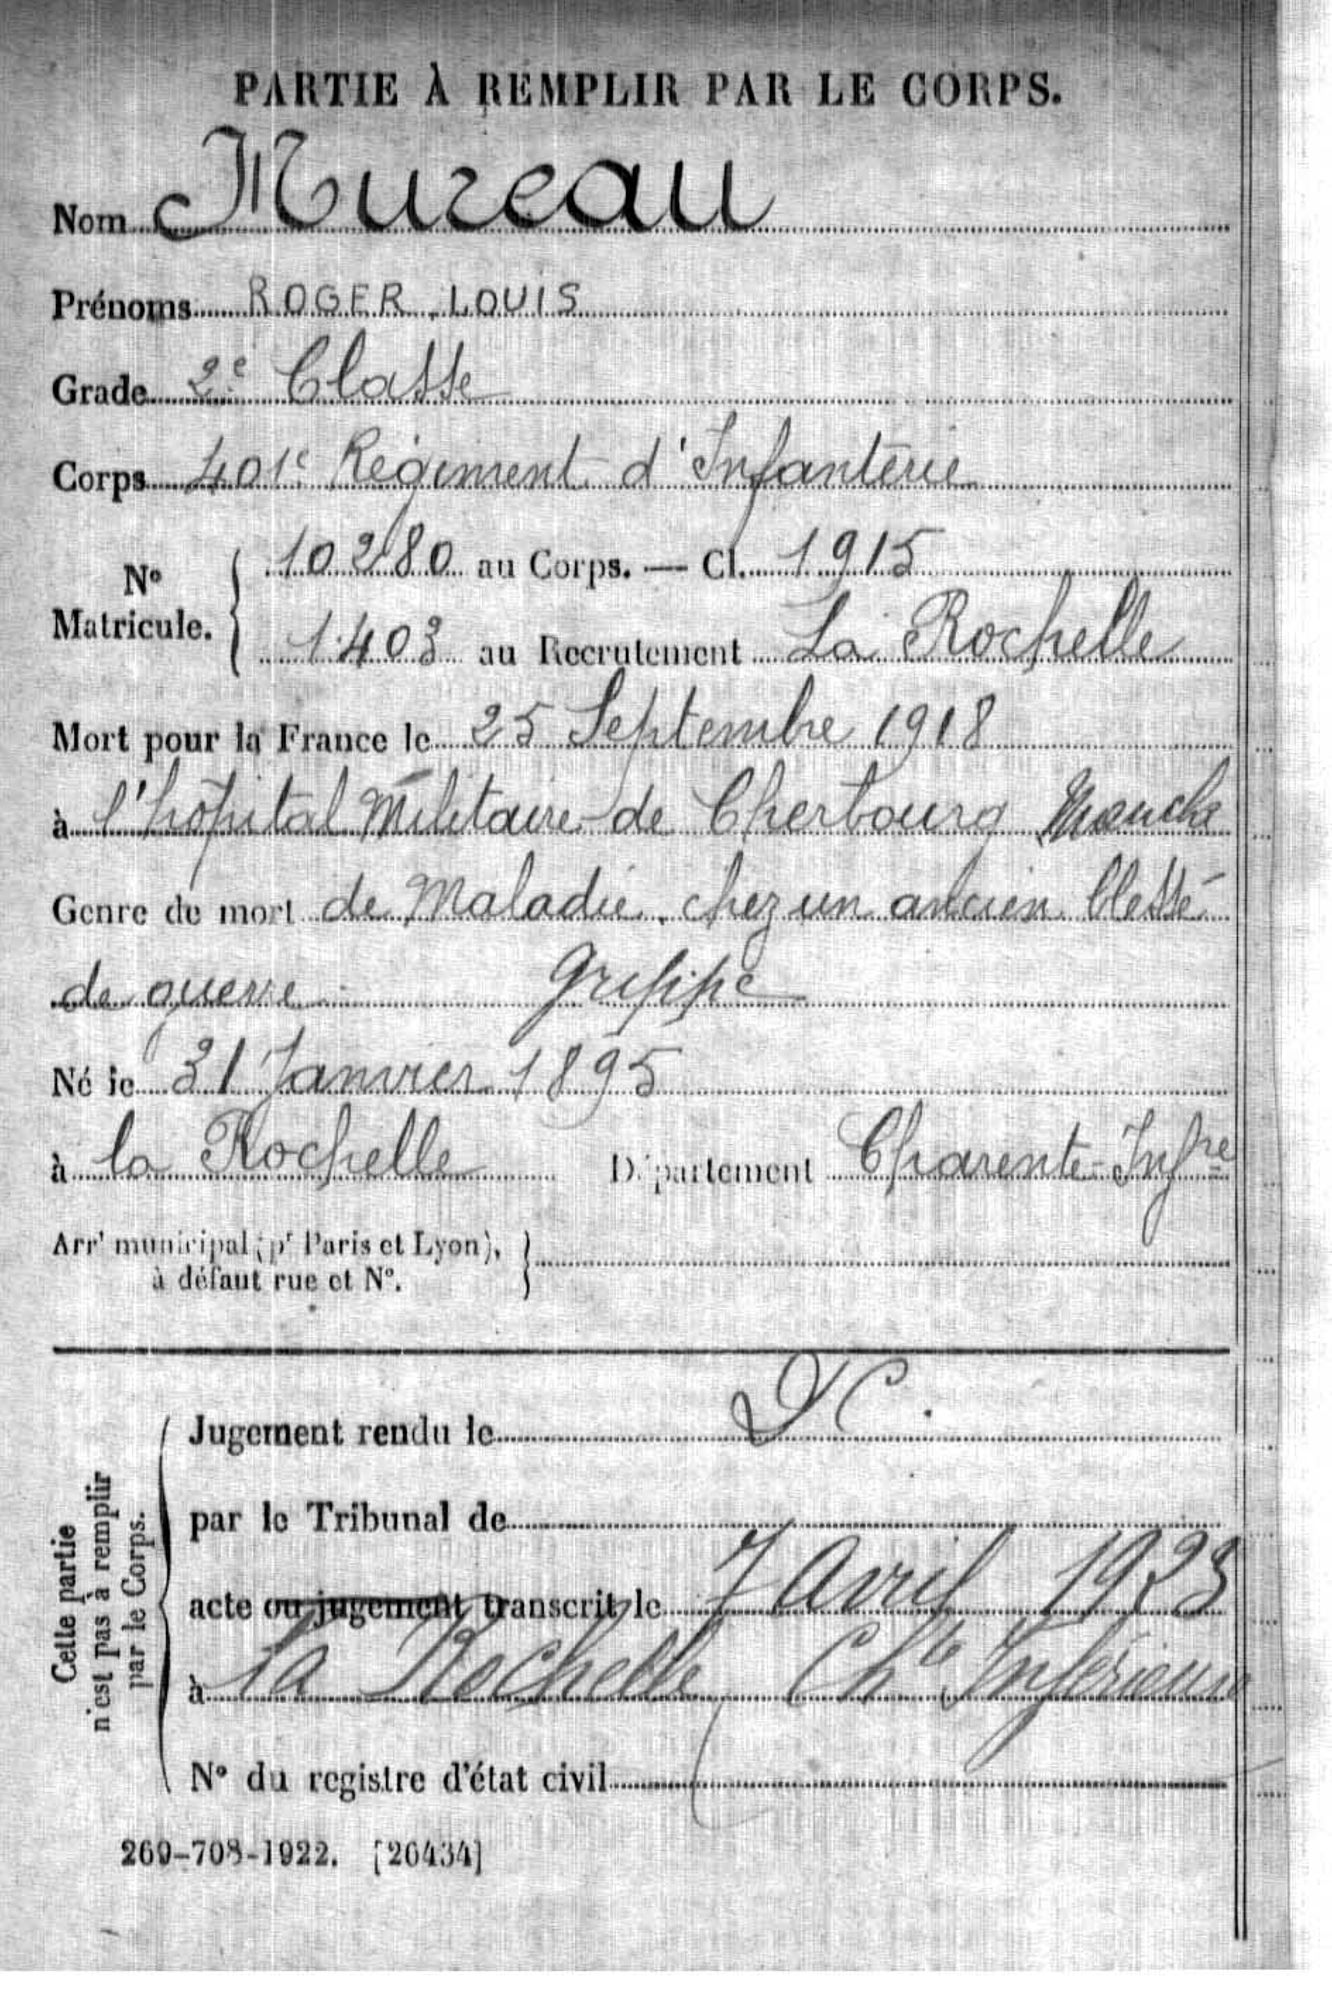 PARTIE À REMPLIR PAR LE CORPS.
Nom Mureau
Prénoms ROGER, LOUIS
Grade 2e Classe
Corps 401e Régiment d'Infanterie
N° Matricule. { 10280 au Corps. — Cl. 1915
1403 au Recrutement La Rochelle
Mort pour la France le 25 Septembre 1918
à l'hôpital Militaire de Cherbourg Manche
Genre de mort de Maladie. chez un ancien blessé
de guerre Grippe
Né le 31 Janvier 1895
à la Rochelle Département Charente-Infre
Arrt municipal (pr Paris et Lyon), }
à défaut rue et N°.
Cette partie n'est pas à remplir par le Corps.
Jugement rendu le
par le Tribunal de
acte ou jugement transcrit le 7 Avril 1923
à La Rochelle Chte Inférieure
N° du registre d'état civil
269-708-1922. [26434]